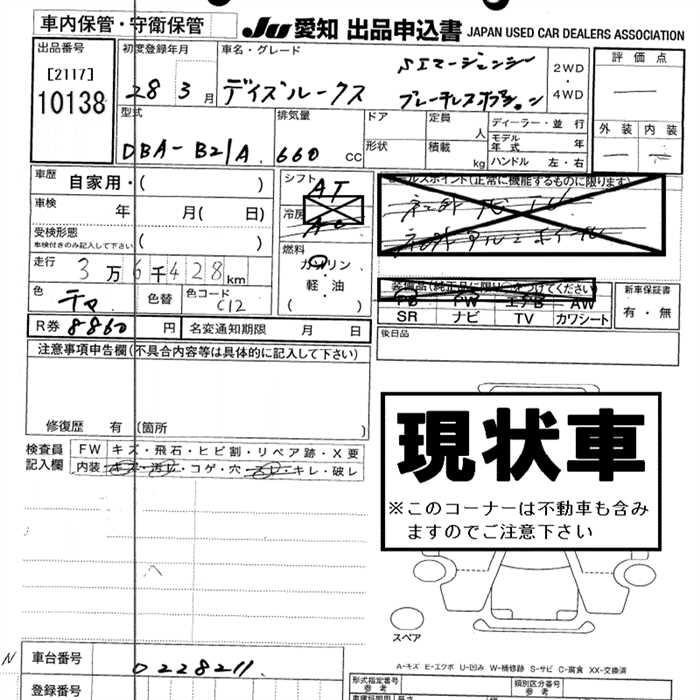 車内保管・守衛保管
JU 愛知 出品申込書 JAPAN USED CAR DEALERS ASSOCIATION
出品番号
[2117]
10138
初度登録年月
28 3月
車名・グレード
デイズルークス
2WD
・
4WD
評価点
外装 内装
型式
DBA-B21A
排気量
660 cc
ドア
形状
定員
人
積載
kg
ディーラー・並行
モデル年式 年
ハンドル 左・右
車歴 自家用・( )
車検 年 月( 日)
受検形態
車検付きのみ記入して下さい ( )
走行 3万6千428km
色
色替
色コード
C12
シフト
AT
冷房
燃料
ガソリン
・
軽・油
( )
セールスポイント(正常に機能するものに限ります)
装備品(純正品に限り○をつけてください)
PS PW エアB AW
SR ナビ TV カワシート
新車保証書
有・無
後日品
R券 8860円 名変通知期限 月 日
注意事項申告欄(不具合内容等は具体的に記入して下さい)
修復歴 有 (箇所 )
検査員記入欄
FW キズ・飛石・ヒビ割・リペア跡・X要
内装 キズ・汚レ・コゲ・穴・スレ・キレ・破レ
現状車
※このコーナーは不動車も含み
ますのでご注意下さい
スペア
A-キズ E-エクボ U-凹み W-補修跡 S-サビ C-腐食 XX-交換済
N
車台番号 0228211
登録番号
形式指定番号
参考
類別区分番号
参考